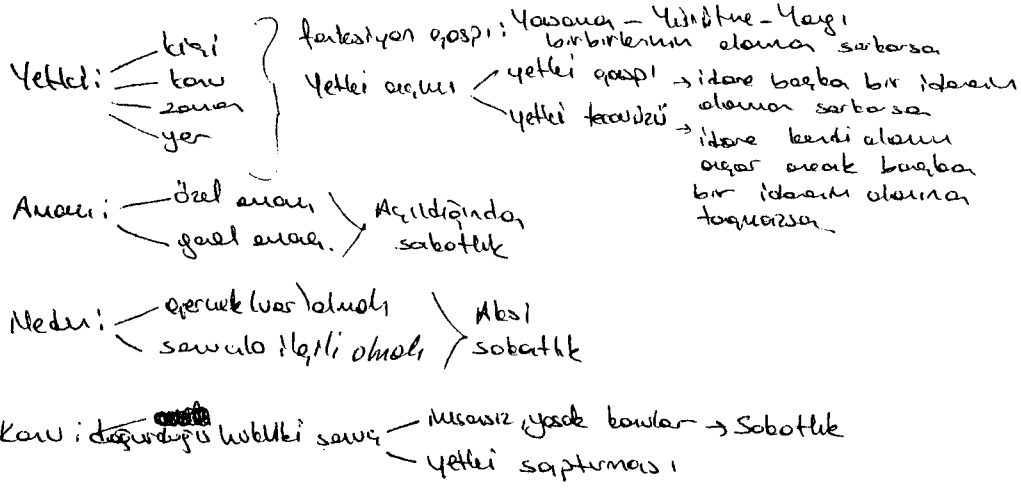 Yetki: kişi
konu
zaman
yer
fonksiyon gaspı: Yasama - Yürütme - Yargı
birbirlerinin alanına sarkarsa
Yetki aşımı
yetki gaspı → idare başka bir idarenin
alanına sarkarsa
yetki tecavüzü → idare kendi alanını
aşar ancak başka
bir idarenin alanına
taşmazsa
Amaç: özel amaç
genel amaç
Aşıldığında
sakatlık
Neden: gerçek (var) olmalı
sonuçla ilgili olmalı
Aksi
sakatlık
Konu: doğurduğu hukuki sonuç
imkansız, yasak konular → Sakatlık
yetki saptırması